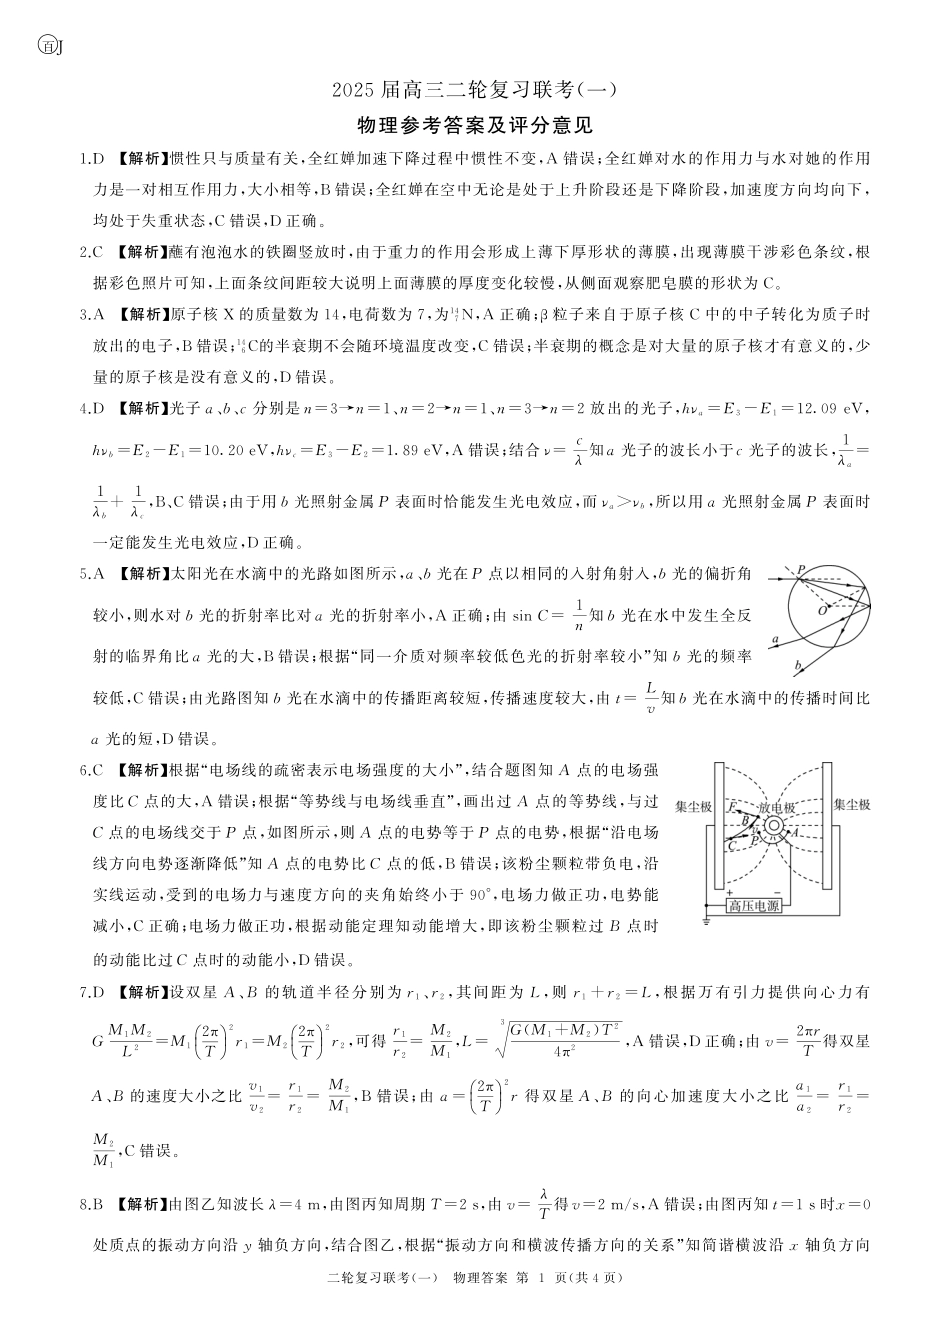 百J
2025 届高三二轮复习联考(一)
物理参考答案及评分意见
1.D 【解析】惯性只与质量有关,全红婵加速下降过程中惯性不变,A 错误;全红婵对水的作用力与水对她的作用
力是一对相互作用力,大小相等,B 错误;全红婵在空中无论是处于上升阶段还是下降阶段,加速度方向均向下,
均处于失重状态,C 错误,D 正确。
2.C 【解析】蘸有泡泡水的铁圈竖放时,由于重力的作用会形成上薄下厚形状的薄膜,出现薄膜干涉彩色条纹,根
据彩色照片可知,上面条纹间距较大说明上面薄膜的厚度变化较慢,从侧面观察肥皂膜的形状为 C。
3.A 【解析】原子核 X 的质量数为 14,电荷数为 7,为¹⁴₇N,A 正确;β 粒子来自于原子核 C 中的中子转化为质子时
放出的电子,B 错误;¹⁴₆C的半衰期不会随环境温度改变,C 错误;半衰期的概念是对大量的原子核才有意义的,少
量的原子核是没有意义的,D 错误。
4.D 【解析】光子 a、b、c 分别是 n=3→n=1、n=2→n=1、n=3→n=2 放出的光子,hνₐ=E₃-E₁=12.09 eV,
hν_b=E₂-E₁=10.20 eV,hν_c=E₃-E₂=1.89 eV,A 错误;结合 ν=c/λ 知 a 光子的波长小于 c 光子的波长,1/λₐ=
1/λ_b+1/λ_c,B、C 错误;由于用 b 光照射金属 P 表面时恰能发生光电效应,而 νₐ>ν_b,所以用 a 光照射金属 P 表面时
一定能发生光电效应,D 正确。
5.A 【解析】太阳光在水滴中的光路如图所示,a、b 光在 P 点以相同的入射角射入,b 光的偏折角
较小,则水对 b 光的折射率比对 a 光的折射率小,A 正确;由 sin C=1/n 知 b 光在水中发生全反
射的临界角比 a 光的大,B 错误;根据“同一介质对频率较低色光的折射率较小”知 b 光的频率
较低,C 错误;由光路图知 b 光在水滴中的传播距离较短,传播速度较大,由 t=L/v 知 b 光在水滴中的传播时间比
a 光的短,D 错误。
P
O
a
b
6.C 【解析】根据“电场线的疏密表示电场强度的大小”,结合题图知 A 点的电场强
度比 C 点的大,A 错误;根据“等势线与电场线垂直”,画出过 A 点的等势线,与过
C 点的电场线交于 P 点,如图所示,则 A 点的电势等于 P 点的电势,根据“沿电场
线方向电势逐渐降低”知 A 点的电势比 C 点的低,B 错误;该粉尘颗粒带负电,沿
实线运动,受到的电场力与速度方向的夹角始终小于 90°,电场力做正功,电势能
减小,C 正确;电场力做正功,根据动能定理知动能增大,即该粉尘颗粒过 B 点时
的动能比过 C 点时的动能小,D 错误。
集尘极
F
放电极
集尘极
B
v
A
C
P
+ −
高压电源
7.D 【解析】设双星 A、B 的轨道半径分别为 r₁、r₂,其间距为 L,则 r₁+r₂=L,根据万有引力提供向心力有
G M₁M₂/L²=M₁(2π/T)²r₁=M₂(2π/T)²r₂,可得 r₁/r₂=M₂/M₁,L=∛(G(M₁+M₂)T²/4π²),A 错误,D 正确;由 v=2πr/T 得双星
A、B 的速度大小之比 v₁/v₂=r₁/r₂=M₂/M₁,B 错误;由 a=(2π/T)²r 得双星 A、B 的向心加速度大小之比 a₁/a₂=r₁/r₂=
M₂/M₁,C 错误。
8.B 【解析】由图乙知波长 λ=4 m,由图丙知周期 T=2 s,由 v=λ/T 得 v=2 m/s,A 错误;由图丙知 t=1 s 时 x=0
处质点的振动方向沿 y 轴负方向,结合图乙,根据“振动方向和横波传播方向的关系”知简谐横波沿 x 轴负方向
二轮复习联考(一) 物理答案 第 1 页(共 4 页)